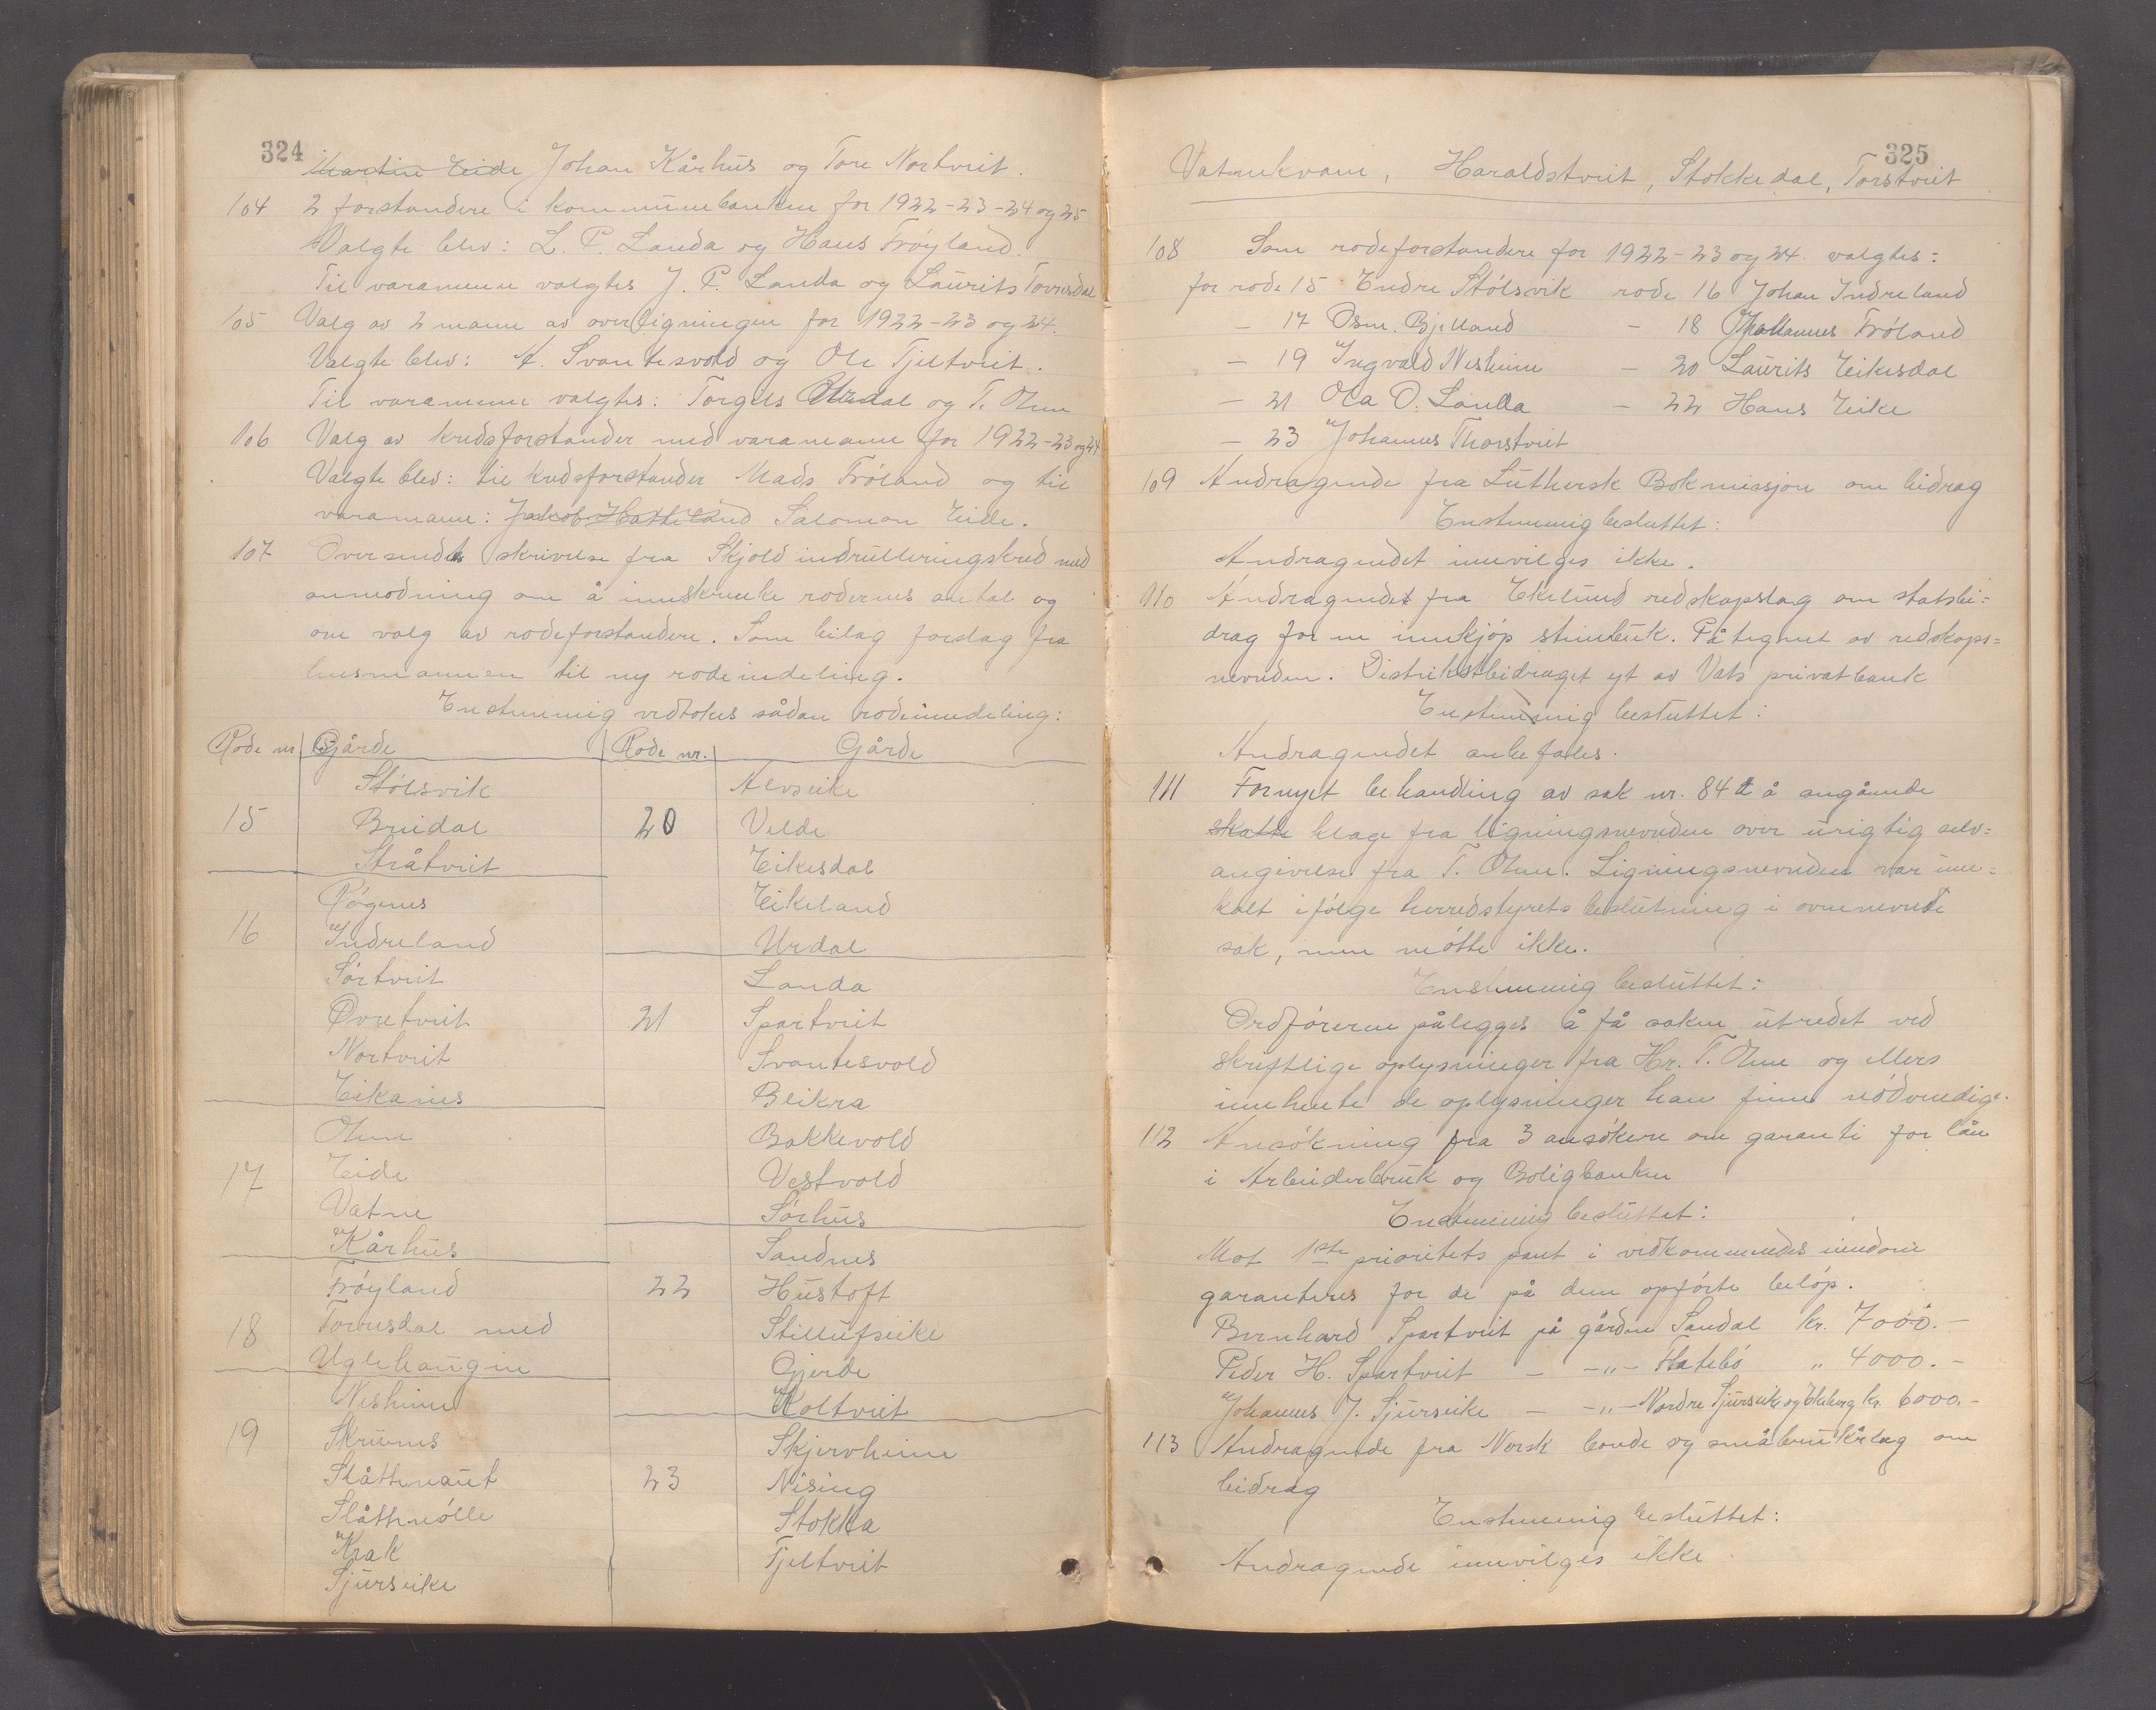 324
Martin Eide Johan Kårhus og Tore Nortveit.
104 2 forstandere i kommunebanken for 1922-23-24 og 25
Valgte blev: L. P. Landa og Hans Frøyland.
Til varamenn valgtes J. P. Landa og Laurits Torvesdal
105 Valg av 2 mann av overligningen for 1922-23 og 24.
Valgte blev: A. Svantesvold og Ole Tjeltveit.
Til varamenn valgtes: Torgils Urdal og T. Ohm
106 Valg av kredsforstander med varamann for 1922-23 og 24
Valgte blev: til kredsforstander Mads Frøland og til
varamann: Jakob Hatteland Salomon Eide.
107 Oversendt skrivelse fra Skjold indrulleringskred med
anmodning om å innskrenke rodernes antal og
om valg av rodeforstandere. Som bilag forslag fra
lensmannen til ny rodeindeling.
Enstemmig vedtokes sådan rodeinndeling:
Rode nr Gårde Rode nr. Gårde
Stølsvik Alvseike
15 Breidal 20 Velde
Stråtveit Eikesdal
Røgenes Eikeland
16 Indreland Urdal
Sørtveit Landa
Øvretveit 21 Spartveit
Nortveit Svantesvold
Eikanes Bleikra
Ohm Bakkevold
17 Eide Vestvold
Vatne Sørhus
Kårhus Sandnes
Frøyland 22 Hustoft
18 Torvesdal med Stillufseike
Uglehaugen Gjerde
Nesheim Koltveit
19 Skrunes Skjervheim
Slåttenaut 23 Nising
Slåttemølle Stokka
Krak Tjeltveit
Sjurseike
325
Vatnekvam, Haraldstveit, Stokkedal, Torstveit
108 Som rodeforstandere for 1922-23 og 24. valgtes:
for rode 15 Endre Stølsvik rode 16 Johan Indreland
- 17 Osm. Bjelland - 18 Johannes Frøland
- 19 Ingvald Nesheim - 20 Laurits Eikesdal
- 21 Ola O. Landa - 22 Hans Eike
- 23 Johannes Thorstveit
109 Andragende fra Luthersk Bokmissjon om bidrag
Enstemmig besluttet:
Andragendet innvilges ikke.
110 Andragendet fra Ekelund redskapslag om statsbi=
drag for en innkjøp steinbuk. Påtegnet av redskaps=
nevnden. Distriktsbidraget yt av Vats privatbank
Enstemmig besluttet:
Andragendet anbefales.
111 Fornyet behandling av sak nr. 84 d å angående
skatte klage fra ligningsnevnden over urigtig selv=
angivelse fra T. Ohm. Ligningsnevnden var inn=
kalt ifølge herredstyrets beslutning i ovennevnte
sak, men møtte ikke.
Enstemmig besluttet:
Ordføreren pålegges å få saken utredet ved
skriftlige oplysninger fra Hr. T. Ohm og ellers
innhente de oplysninger han finner nødvendige.
112 Ansøkning fra 3 ansøkere om garanti for lån
i Arbeiderbruk og Boligbanken
Enstemmig besluttet:
Mot 1ste prioritets pant i vedkommendes eiendom
garanteres for de på dem opførte beløp.
Bernhard Spartveit på gården Sandal kr. 7000.-
Peder H. Spartveit - -„- Flatebø „ 4000.-
Johannes J. Sjurseike - -„- Nordre Sjurseike og Ekeberg kr. 6000.-
113 Andragende fra Norsk bonde og småbrukårlag om
bidrag
Enstemmig besluttet:
Andragende innvilges ikke